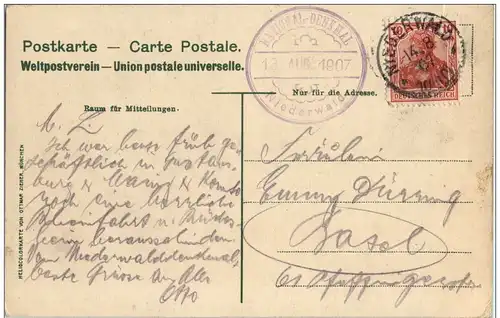 Postkarte — Carte Postale.
Weltpostverein — Union postale universelle.
NATIONAL-DENKMAL
13. AUG. 1907
Niederwald
DEUTSCHES REICH
Nur für die Adresse.
Raum für Mitteilungen.
M. L.
Ich war heute früh ge-
schäftlich in
burg & Mainz &
noch eine herrliche
Rheinfahrt
Niederwalddenkmal,
beste Grüsse an Alle
Otto
Fräulein
Emmy Dürring
Basel
HELIOCOLORKARTE VON OTTMAR ZIEHER, MÜNCHEN